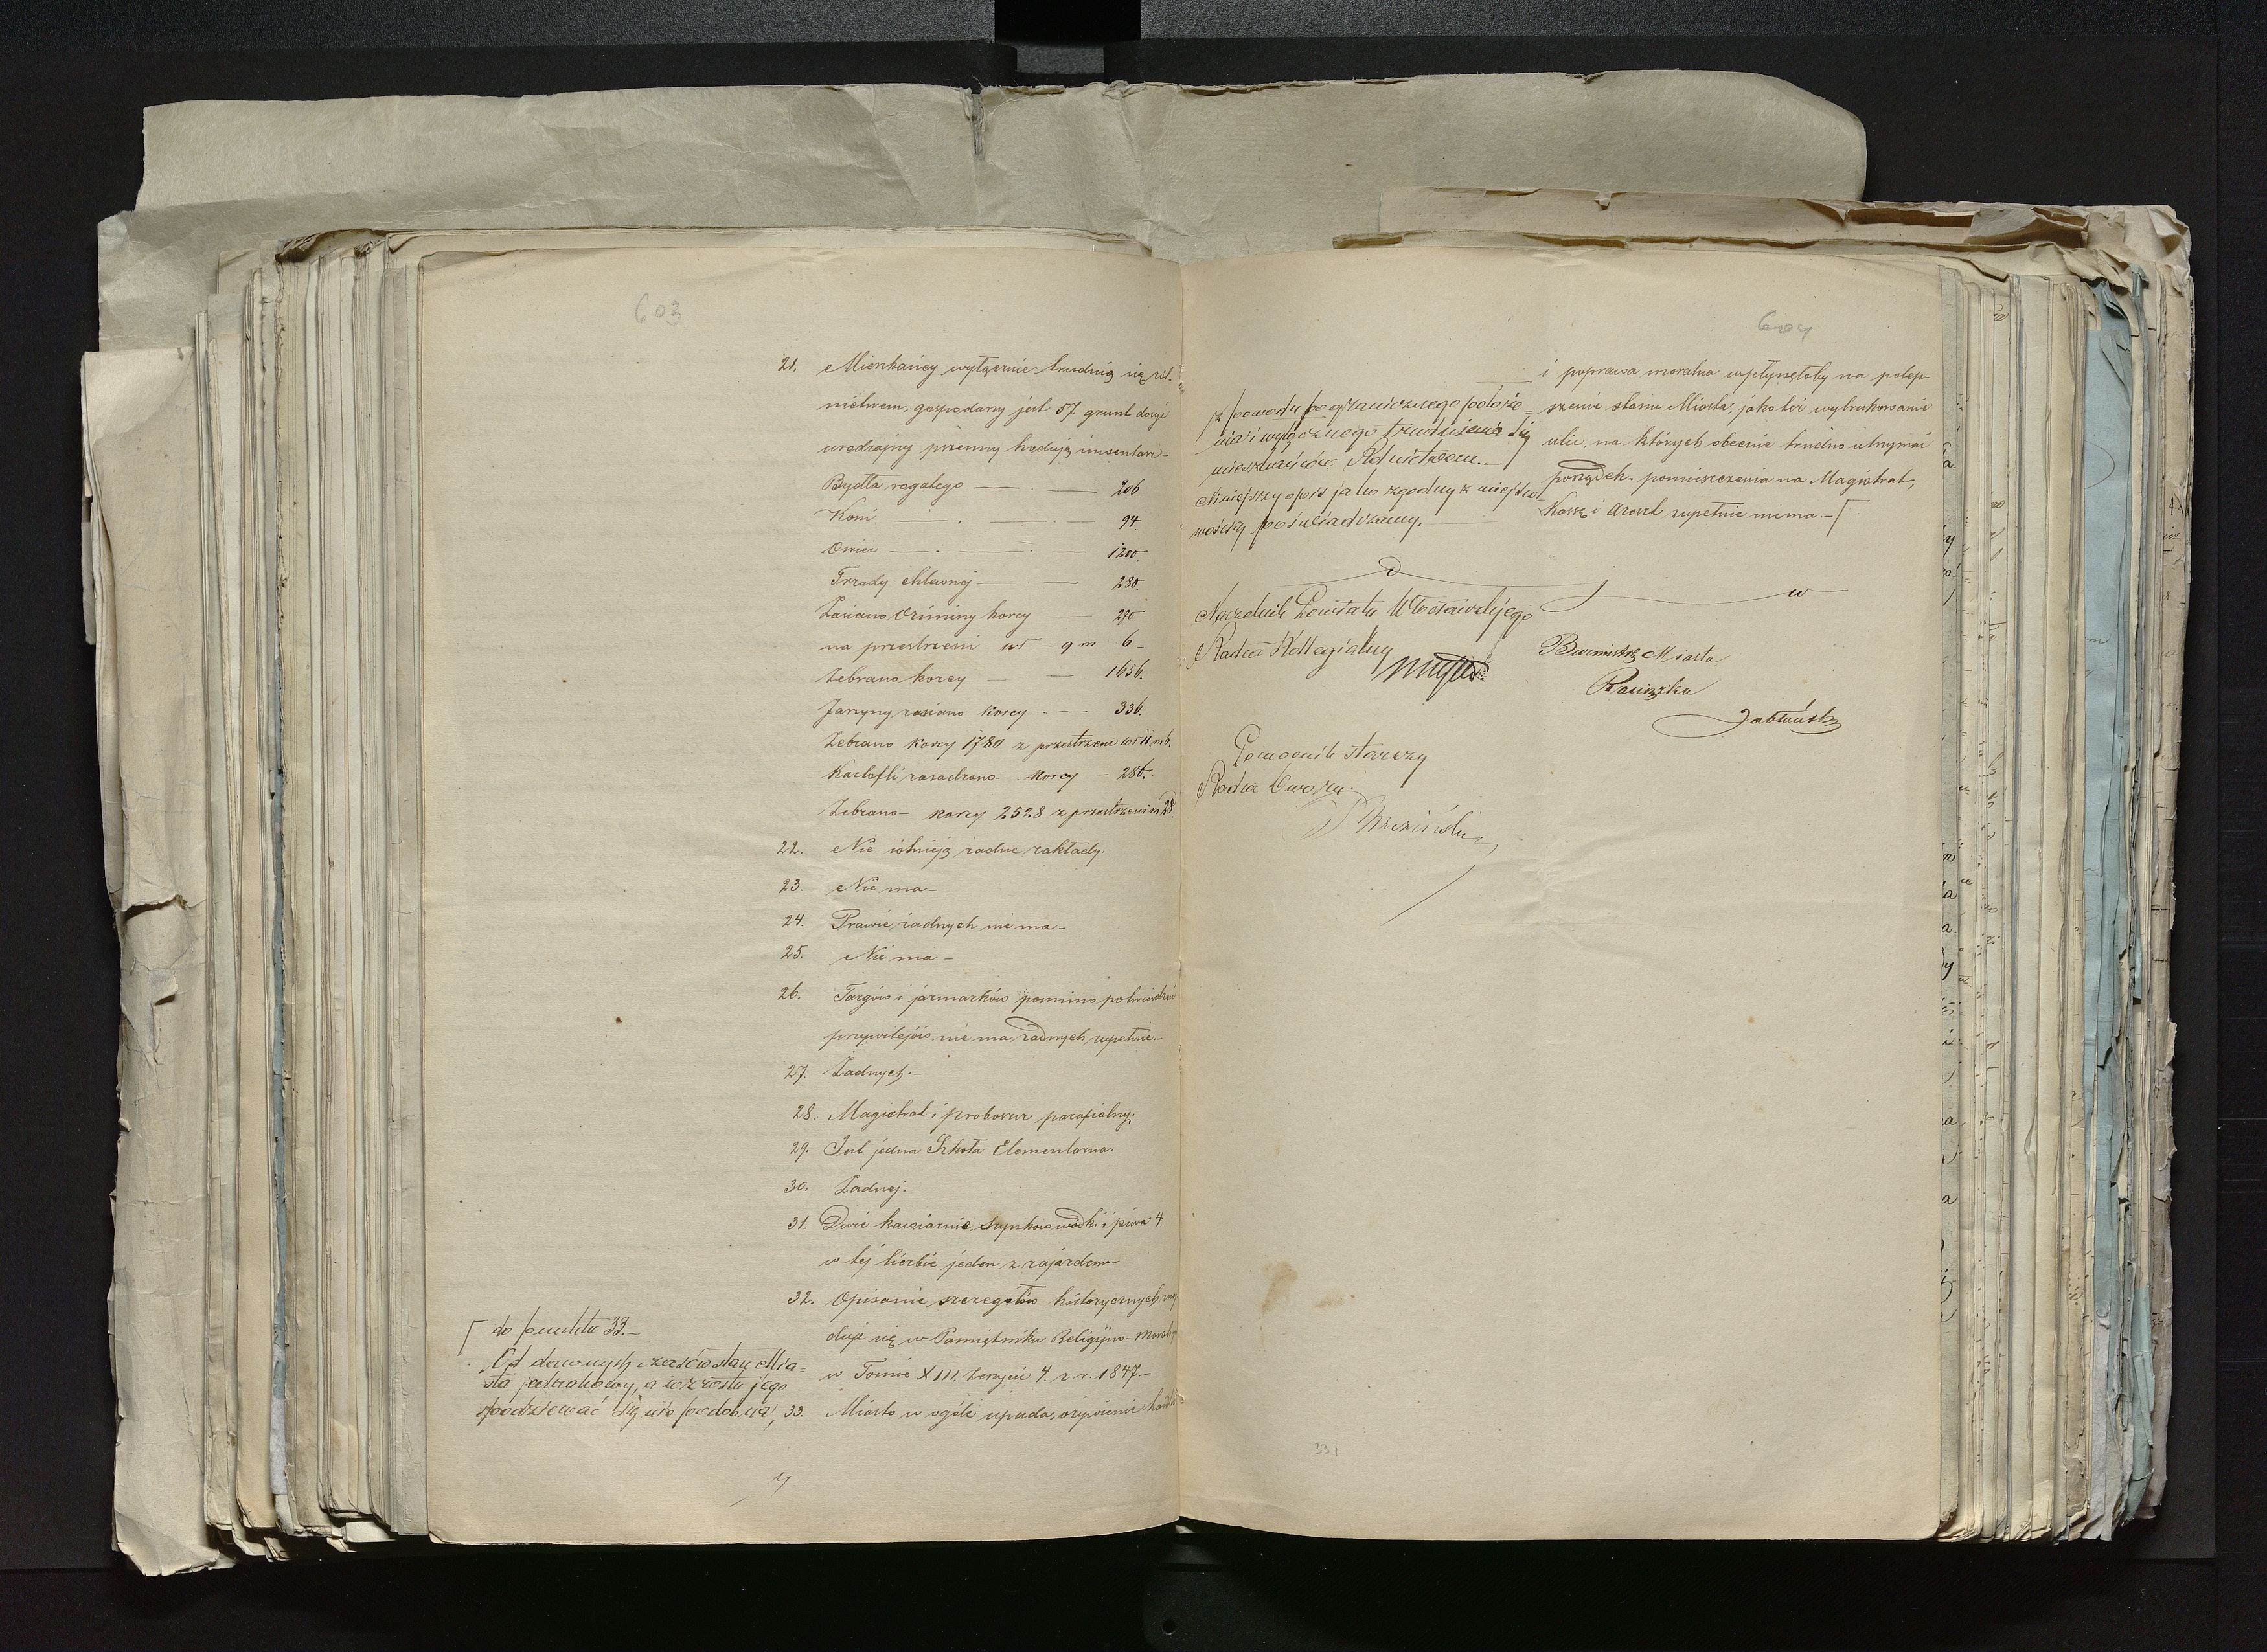 603
21. Mieszkańcy wyłącznie trudnią się rol-
nictwem, gospodarzy jest 57. grunt dosyć
urodzajny pszenny hodują inwentarz
Bydła rogatego — 206
Koni — 94.
Owiec — 1200.
Trzody chlewnej — 280.
Zasiano Oziminy korcy — 290
na przestrzeni wł — 9 m 6 —
Zebrano korcy — 1656.
Jarzyny zasiano korcy — 336.
Zebrano korcy 1780 z przestrzeni wł 11. m 6.
Kartofli zasadzono korcy — 286.
Zebrano — korcy 2528 z przestrzeni m 28.
22. Nie istnieją żadne zakłady.
23. Nie ma —
24. Prawie żadnych nie ma —
25. Nie ma —
26. Targów i jarmarków pomimo
przywilejów nie ma żadnych zupełnie.—
27. Żadnych.—
28. Magistrat i proboszcz parafialny.
29. Jest jedna Szkoła Elementarna.
30. Żadnej.
31. Dwie karczmy, szynków wódki i piwa 4.
w tej liczbie jeden z zajazdem—
32. Opisanie szczegółów historycznych
duje się w Pamiętniku Religijno-Moralnym
w Tomie XIII. Zeszycie 4. z r. 1847.—
33. Miasto w ogóle upada, ożywienie handlu
do punktu 33.—
Od dawnych czasów stan Mia=
sta jednakowy, a wzrostu jego
spodziewać się niepodobna,
604
z powodu pogranicznego położe=
nia i wyłącznego trudnienia się
mieszkańców Rolnictwem.—
Niniejszy opis jako zgodny z miejsco
wością poświadczamy.
Naczelnik Powiatu Włocławskiego
Radca Kollegialny
Pomocnik starszy
Radca Dworu
Brzeziński
i poprawa moralna wpłynęłoby na polep-
szenie stanu Miasta, jako też wybrukowanie
ulic, na których obecnie trudno utrzymać
porządek pomieszczenia na Magistrat,
Kassę i Areszt zupełnie niema.—
Burmistrz Miasta
Raciążka
Jabłoński
331